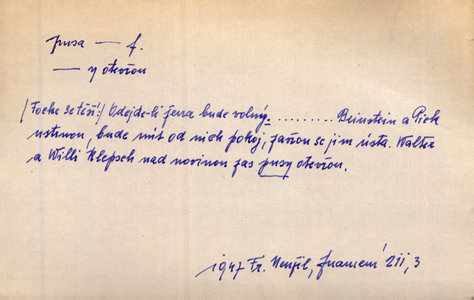 pusa — f.
— y otevřou
/Fochr se těší:/ Odejde-li žena bude volný. .......... Beinstein a Pick
ustrnou, bude mít od nich pokoj, zavřou se jim ústa. Walter
a Willi Klepsch nad novinou zas pusy otevřou.
1947 Fr. Neužil, Znamení 211, 3